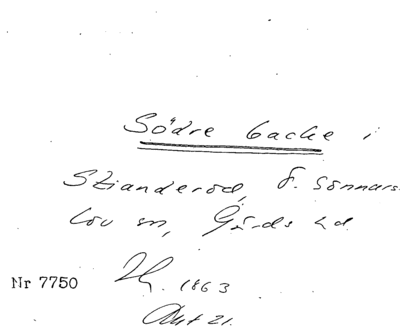 Södre backe i
Skianderöd, Ö. Sönnars-
löv sn, Gärds hd
Nr 7750 1863
Akt 21.